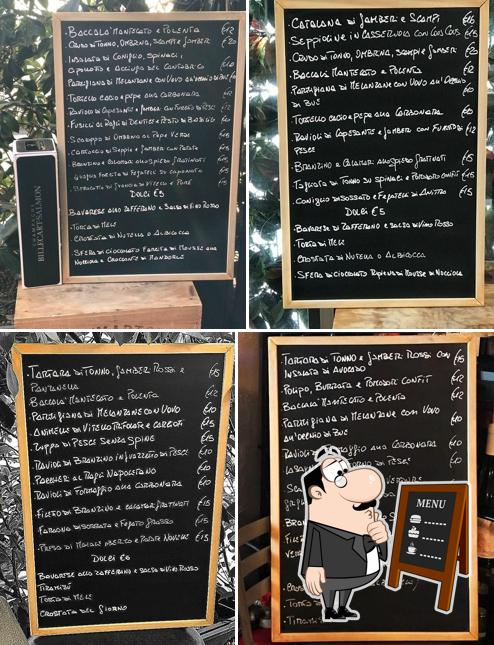 BACCALÀ MANTECATO E POLENTA €12
CRUDO DI TONNO, OMBRINA, SCAMPI E GAMBERI €20
INSALATA DI CONIGLIO, SPINACI,
POMODORO E ACCIUGA DEL CANTABRICO €10
PARMIGIANA DI MELANZANE CON UOVO
TORTELLO CACIO E PEPE ALLA CARBONARA
RAVIOLI DI CAPESANTE E GAMBERI CON FUMETTO DI PESCE €12
FUSILLI AL RAGÙ DI DENTICE E PESTO DI BASILICO
SCALOPPA DI OMBRINA AL PEPE VERDE €15
CARTOCCIO DI SEPPIE E GAMBERI CON PATATE €15
BRANZINO E CALAMARI ALLO SPIEDO GRATINATI €15
QUAGLIA FARCITA DI FEGATELLI SU CAPONATA €15
DOLCI €5
BAVARESE ALLO ZAFFERANO E SALSA DI VINO ROSSO
TORTA DI MELE
CROSTATA DI NUTELLA O ALBICOCCA
SFERA DI CIOCCOLATO FARCITA DI MOUSSE ALLA
NOCCIOLA E CROCCANTE DI MANDORLE
BILLECART-SALMON
CATALANA DI GAMBERI E SCAMPI €16
SEPPIOLINE IN CASSERUOLA CON COUS COUS €15
CRUDO DI TONNO, OMBRINA, SCAMPI E GAMBERI €20
BACCALÀ MANTECATO E POLENTA €12
PARMIGIANA DI MELANZANE CON UOVO ALL'OCCHIO
DI BUE €10
TORTELLO CACIO E PEPE ALLA CARBONARA €10
RAVIOLI DI CAPESANTE E GAMBERI CON FUMETTO DI €12
PESCE
BRANZINO E CALAMARI ALLO SPIEDO GRATINATI €15
TAGLIATA DI TONNO SU SPINACI E POMODORO CONFIT €15
CONIGLIO DISOSSATO E FEGATELLI DI €15
DOLCI €5
BAVARESE DI ZAFFERANO E SALSA DI VINO ROSSO
TORTA DI MELE
CROSTATA DI NUTELLA O ALBICOCCA
SFERA DI CIOCCOLATO RIPIENA DI MOUSSE DI NOCCIOLA
TARTARA DI TONNO, GAMBERI ROSSI E €15
PANZANELLA
BACCALÀ MANTECATO E POLENTA €12
PARMIGIANA DI MELANZANE CON UOVO €10
ANIMELLE DI VITELLO TRIFOLATE E CARCIOFI €15
ZUPPA DI PESCE SENZA SPINE €15
RAVIOLI DI BRANZINO IN GUAZZETTO DI PESCE €10
PACCHERI AL RAGÙ NAPOLETANO €10
RAVIOLI DI FORMAGGIO ALLA CARBONARA €10
FILETTO DI BRANZINO E CALAMARI GRATINATI €15
FARAONA DISOSSATA E FEGATO GRASSO €15
PRESA DI MAIALE IBERICO E PATATE NOVELLE €15
DOLCI €5
BAVARESE ALLO ZAFFERANO E SALSA DI VINO ROSSO
TIRAMISÙ
TORTA DI MELE
CROSTATA DEL GIORNO
TARTARA DI TONNO E GAMBERI ROSSI CON €15
INSALATA DI AVOCADO
POLIPO, BURRATA E POMODORI CONFIT €12
BACCALÀ MANTECATO E POLENTA €12
PARMIGIANA DI MELANZANE CON UOVO €10
ALL'OCCHIO DI BUE
RAVIOLI DI FORMAGGIO ALLA CARBONARA €10
DI PESCE €10
MENU
TIRAMISÙ